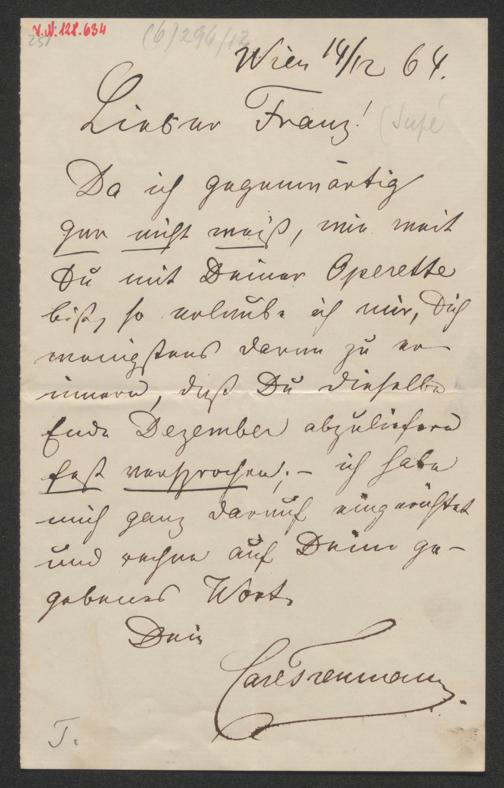 I.N. 128.634
251
(6) 296/12
Wien 14/12 64.
Lieber Franz!
(Supé
Da ich gegenwärtig
gar nicht weiß, wie weit
Du mit Deiner Operette
bist, so erlaube ich mir, Dich
wenigstens daran zu er-
innern, daß Du dieselbe
Ende Dezember abzuliefern
fest versprochen; – ich habe
mich ganz darauf eingerichtet
und rechne auf Dein ge-
gebenes Wort.
Dein
Carl Treumann
T.